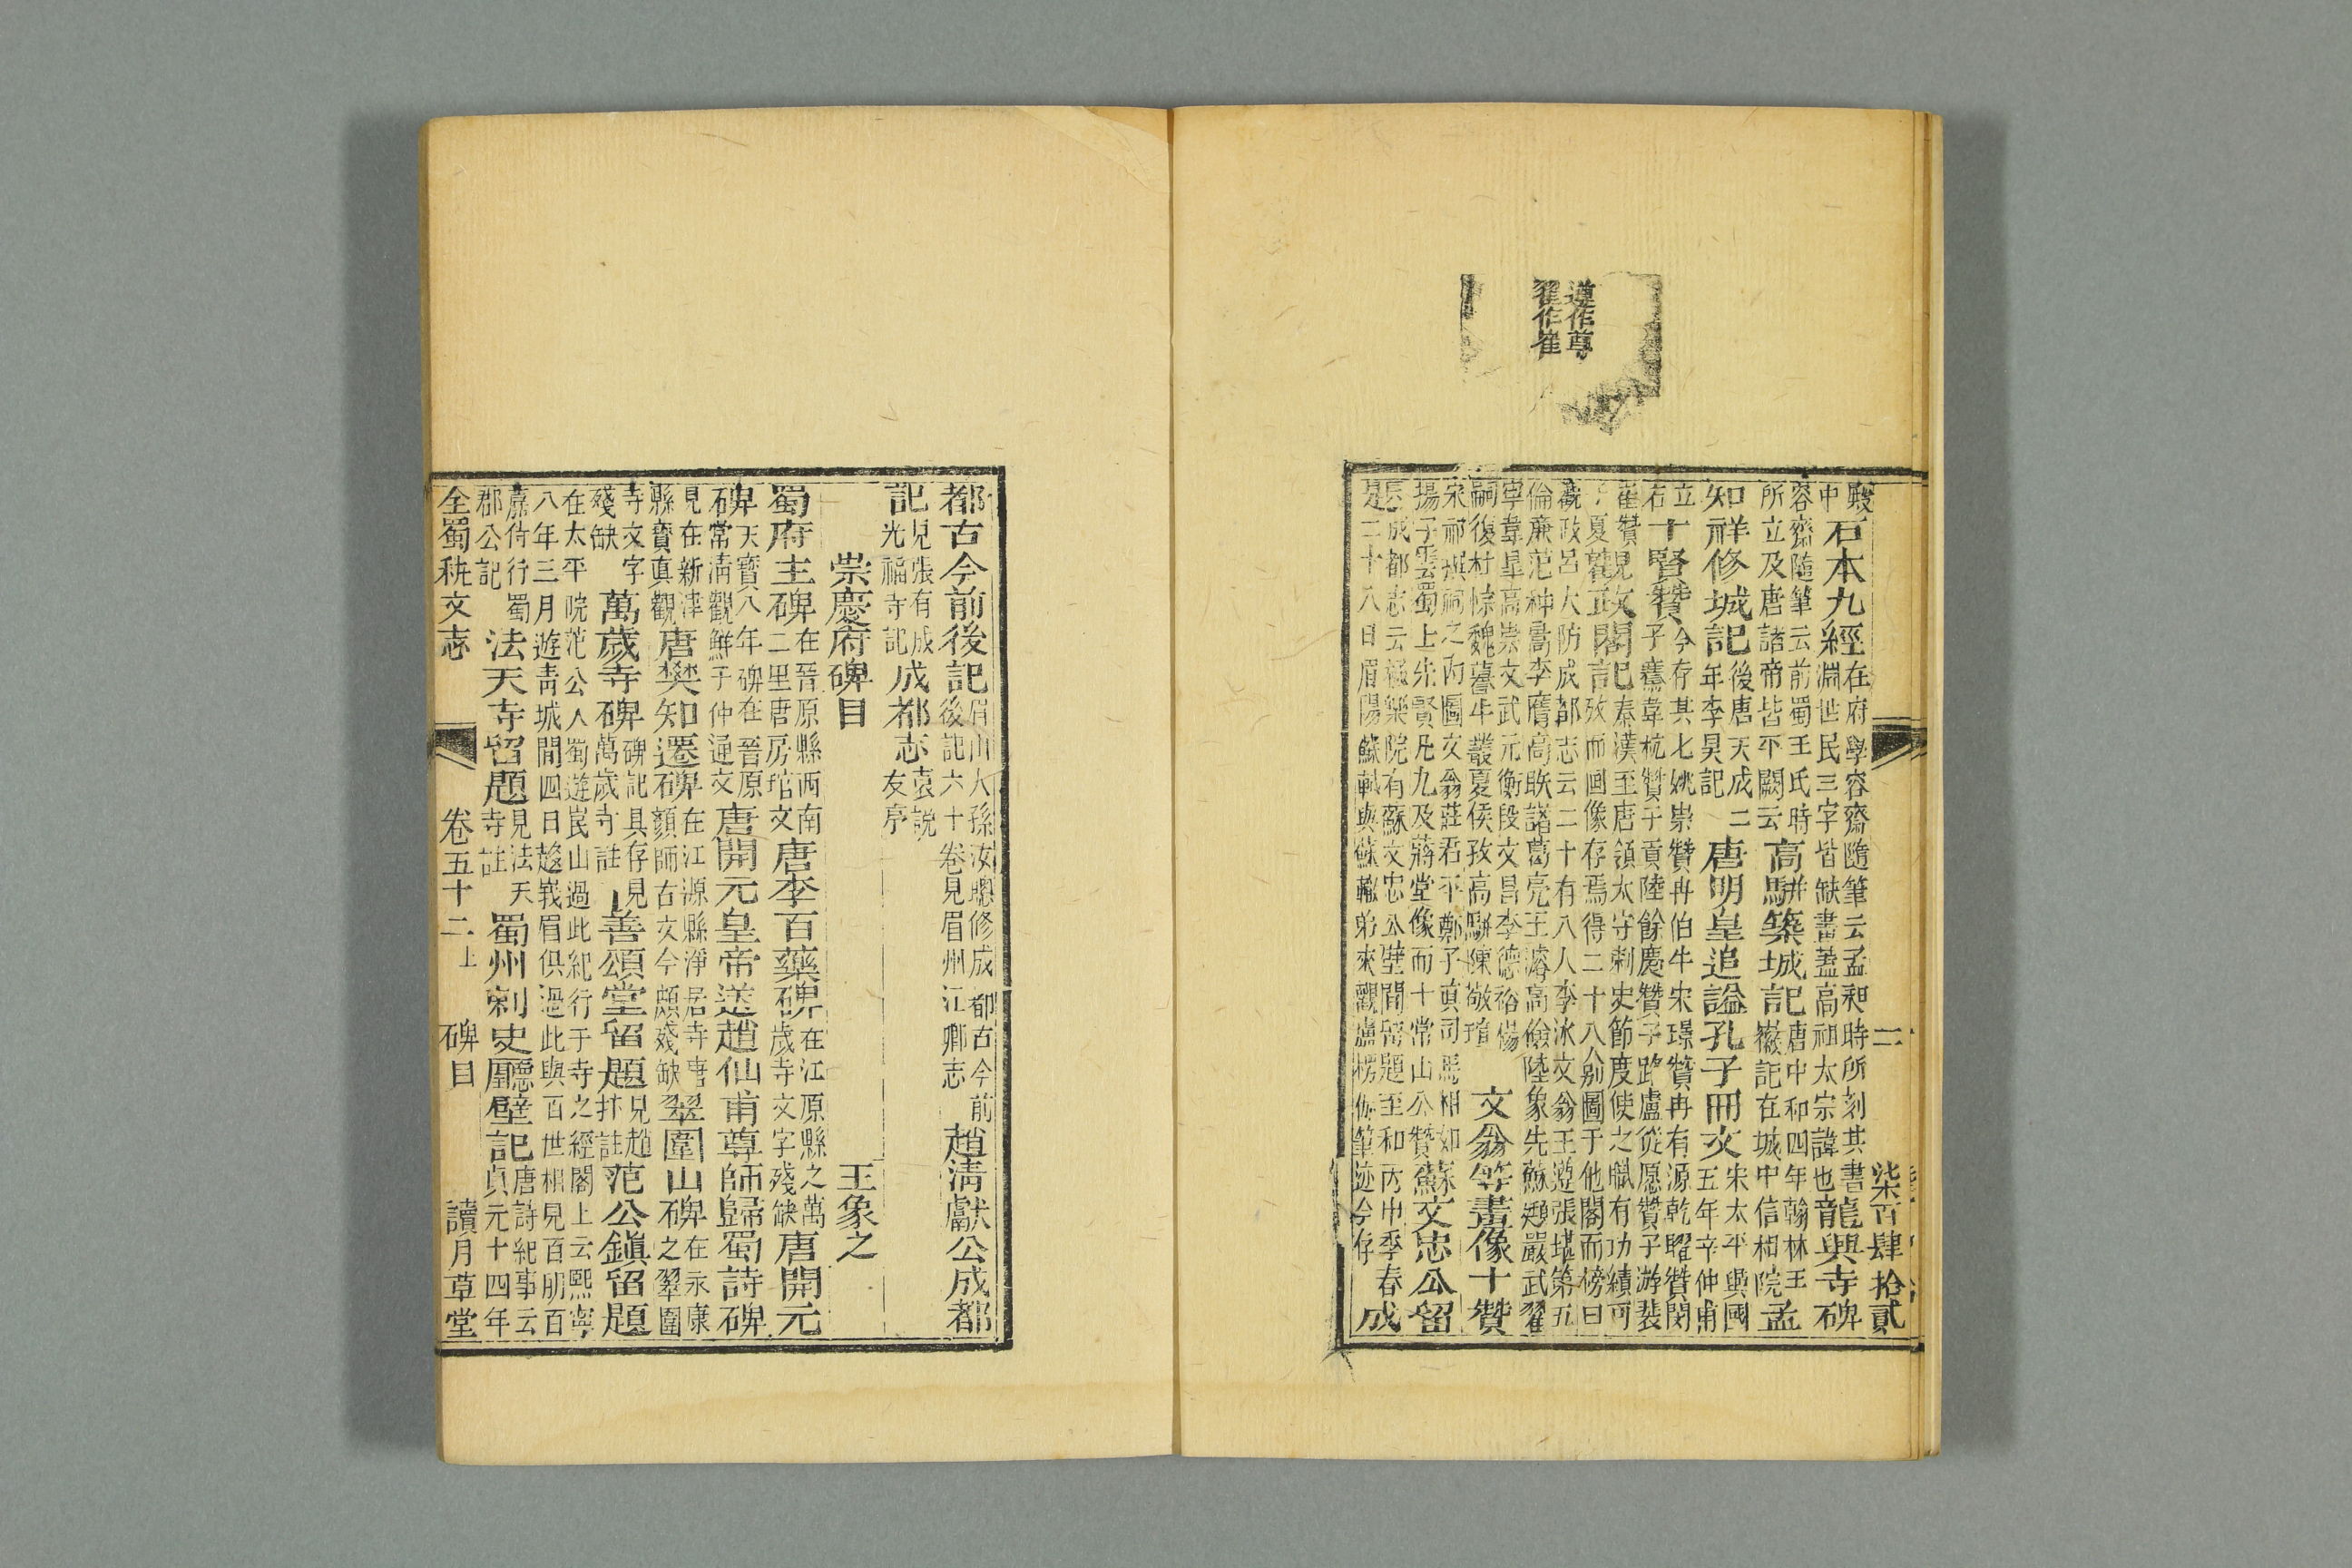 遵作尊
翟作崔
二 柒百肆拾貳
殿
中
石本九經
在府學容齋隨筆云孟昶時所刻其書
淵世民三字皆缺畫蓋高祖太宗諱也
龍興寺碑
容齋隨筆云前蜀王氏時
所立及唐諸帝皆平闕云
高駢築城記
唐中和四年翰林王
徽記在城中信相院
孟
知祥修城記
後唐天成二
年李昊記
唐明皇追謚孔子冊文
宋太平興國
五年辛仲甫
立
石
十賢贊
今存其七姚崇贊冉伯牛宋璟贊冉有源乾曜贊閔
子騫韋杭贊子貢陸餘慶贊子路盧從愿贊子游裴
贊
夏
政閣記
秦漢至唐領太守刺史節度使之職有功績可
攷而畫像存焉得二十八別圖于他閣而榜曰
觀政呂大防成都志云二十有八人李冰文翁王遵張堪第五
倫廉范种暠李膺高眹諸葛亮王濬高儉陸象先蘇頲嚴武翟
寧韋皋高崇文武元衡段文昌李德裕楊
嗣復杜悰魏謩牛叢夏侯孜高駢陳敬瑄
文翁等畫像十贊
宋祁撰祠之內圖文翁莊君平鄭子真司馬相如蘇
揚子雲蜀上先賢凡九及蔣堂像而十常山公贊
蘇文忠公留
成都志云極樂院有蘇文忠公壁間留題至和丙申季春
是二十八日眉陽蘇軾與蘇轍弟來觀盧楞伽筆迹今存
成
都古今前後記
眉山人孫汝聰修成都古今前
後記六十卷見眉州江鄉志
趙清獻公成都
記
見張有成
光福寺記
成都志
袁說
友序
崇慶府碑目 王象之
蜀府主碑
在晉原縣西南
二里唐房琯文
唐李百藥碑
在江原縣之萬
歲寺文字殘缺
唐開元
碑
天寶八年碑在晉原
常清觀鮮于仲通文
唐開元皇帝送趙仙甫尊師歸蜀詩碑
見在新津
縣寶真觀
唐樊知遷碑
在江源縣淨居寺唐
顏師古文今頗殘缺
翠圍山碑
在永康
之翠圍
寺文字
殘缺
萬歲寺碑
碑記具存見
萬歲寺註
上善頌堂留題
見趙
抃註
范公鎮留題
在太平院范公人蜀遊崑山過此紀行于寺之經閣上云熙寧
八年三月遊青城間四日趍峩眉俱過此與百世相見百朋百
麃侍行蜀
郡公記
法天寺留題
見法天
寺註
蜀州刺史廳壁記
唐詩紀事云
貞元十四年
全蜀秇文志 卷五十二上 碑目 讀月草堂